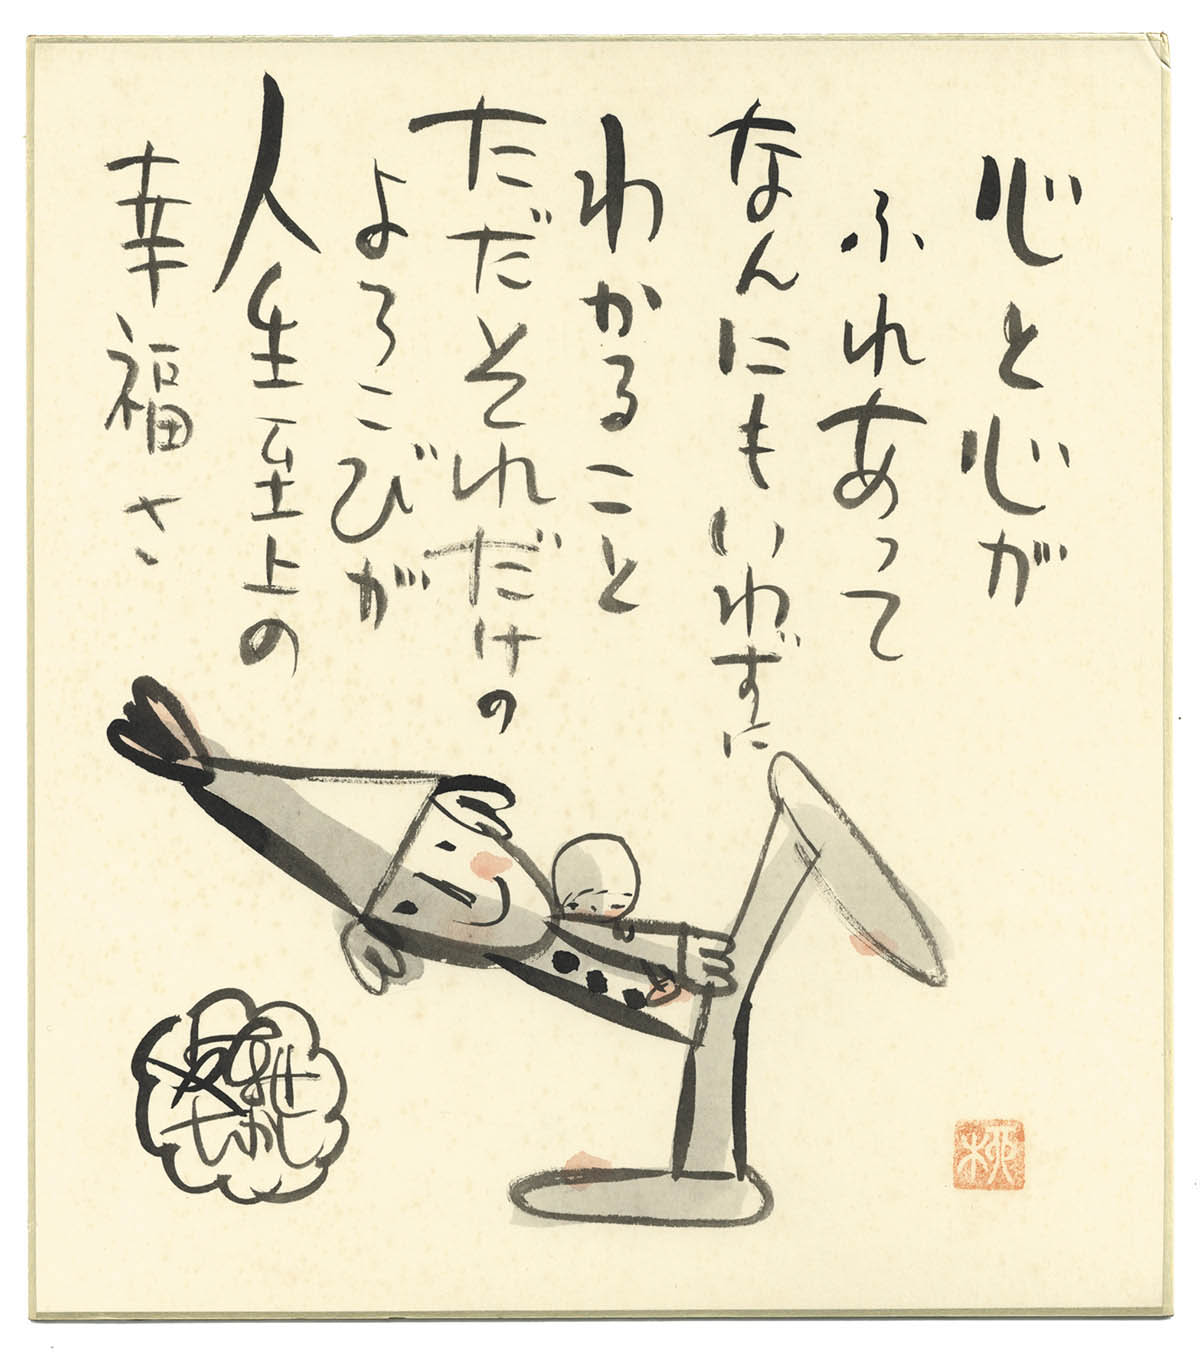 心と心が
ふれあって
なんにもいわずに
わかること
ただそれだけの
よろこびが
人生至上の
幸福さ
やなせ
たかし